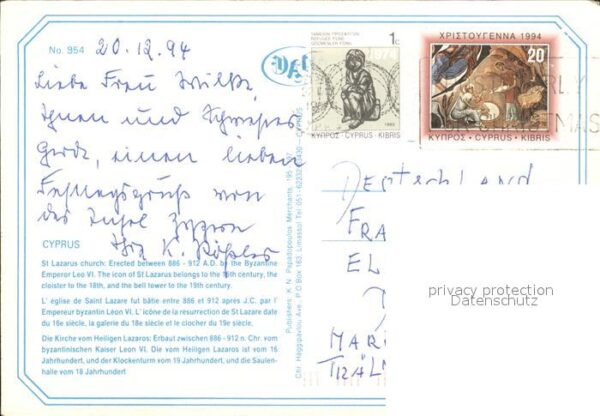 No. 954
20.12.94
Liebe Frau
Ihnen und Schwester
Gerda, einen lieben
Festtagsgruß von
der Insel Zypern
Ihr K.
CYPRUS
St Lazarus church: Erected between 886 - 912 A.D. by the Byzantine
Emperor Leo VI. The icon of St Lazarus belongs to the 16th century, the
cloister to the 18th, and the bell tower to the 19th century.
L' église de Saint Lazare fut bâtie entre 886 et 912 apres J.C. par l'
Empereur byzantin Léon VI. L' icône de la resurrection de St Lazare date
du 16e siècle, la galerie du 18e siècle et le clocher du 19e siècle.
Die Kirche vom Heiligen Lazaros: Erbaut zwischen 886 - 912 n. Chr. vom
byzantinischen Kaiser Leon VI. Die vom Heiligen Lazaros ist vom 16
Jahrhundert, und der Klockenturm vom 19 Jahrhundert, und die Saulen-
halle vom 18 Jahrhundert
Publishers: K. N. Papadopoulos Merchants,
Chr. Haggipavlou Ave. P.O Box 183, Limassol Tel 051 CYPRUS
REFUGEE FUND
1c
1974
ΚΥΠΡΟΣ · CYPRUS · KIBRIS
ΧΡΙΣΤΟΥΓΕΝΝΑ 1994
20c
ΚΥΠΡΟΣ · CYPRUS · KIBRIS
DEUTSCHLAND
FRA
EL
MARI
privacy protection
Datenschutz